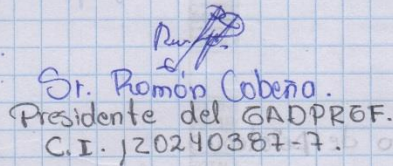 Sr. Ramón Cobeña.
Presidente del GADPRGF.
C.I. 120240387-7.